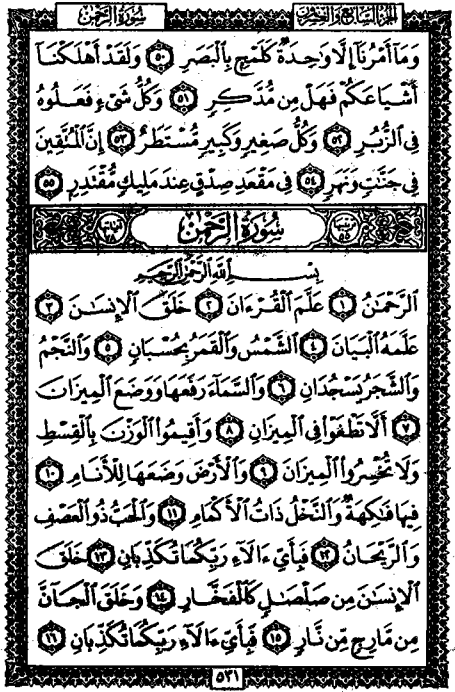 الجزء السابع والعشرون سورة الرحمن
وَمَآ أَمْرُنَآ إِلَّا وَٰحِدَةٌ كَلَمْحٍۭ بِٱلْبَصَرِ ٥٠ وَلَقَدْ أَهْلَكْنَآ
أَشْيَاعَكُمْ فَهَلْ مِن مُّدَّكِرٍ ٥١ وَكُلُّ شَىْءٍ فَعَلُوهُ
فِى ٱلزُّبُرِ ٥٢ وَكُلُّ صَغِيرٍ وَكَبِيرٍ مُّسْتَطَرٌ ٥٣ إِنَّ ٱلْمُتَّقِينَ
فِى جَنَّٰتٍ وَنَهَرٍ ٥٤ فِى مَقْعَدِ صِدْقٍ عِندَ مَلِيكٍ مُّقْتَدِرٍۭ ٥٥
سُورَةُ الرَّحْمٰن
بِسْمِ ٱللَّهِ ٱلرَّحْمَٰنِ ٱلرَّحِيمِ
ٱلرَّحْمَٰنُ ١ عَلَّمَ ٱلْقُرْءَانَ ٢ خَلَقَ ٱلْإِنسَٰنَ ٣
عَلَّمَهُ ٱلْبَيَانَ ٤ ٱلشَّمْسُ وَٱلْقَمَرُ بِحُسْبَانٍ ٥ وَٱلنَّجْمُ
وَٱلشَّجَرُ يَسْجُدَانِ ٦ وَٱلسَّمَآءَ رَفَعَهَا وَوَضَعَ ٱلْمِيزَانَ
٧ أَلَّا تَطْغَوْا۟ فِى ٱلْمِيزَانِ ٨ وَأَقِيمُوا۟ ٱلْوَزْنَ بِٱلْقِسْطِ
وَلَا تُخْسِرُوا۟ ٱلْمِيزَانَ ٩ وَٱلْأَرْضَ وَضَعَهَا لِلْأَنَامِ ١٠
فِيهَا فَٰكِهَةٌ وَٱلنَّخْلُ ذَاتُ ٱلْأَكْمَامِ ١١ وَٱلْحَبُّ ذُو ٱلْعَصْفِ
وَٱلرَّيْحَانُ ١٢ فَبِأَىِّ ءَالَآءِ رَبِّكُمَا تُكَذِّبَانِ ١٣ خَلَقَ
ٱلْإِنسَٰنَ مِن صَلْصَٰلٍ كَٱلْفَخَّارِ ١٤ وَخَلَقَ ٱلْجَآنَّ
مِن مَّارِجٍ مِّن نَّارٍ ١٥ فَبِأَىِّ ءَالَآءِ رَبِّكُمَا تُكَذِّبَانِ ١٦
٥٣١